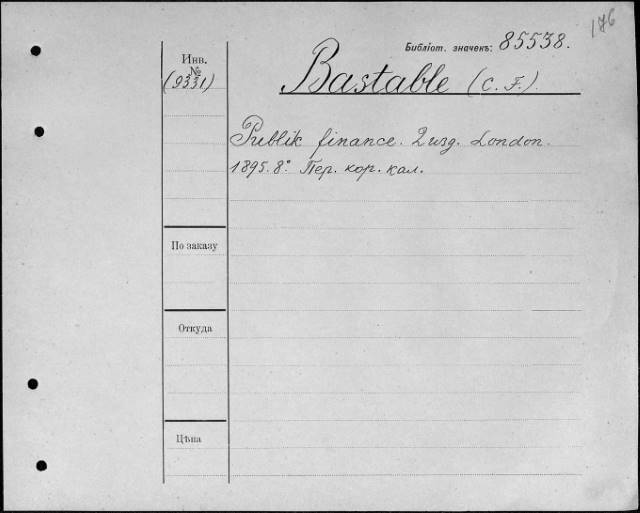 176
Библіот. значекъ: 85538.
Инв.
№
(9331)
Bastable (C. F.).
Publik finance. 2 изд. London.
1895. 8° Пер. кор. кал.
По заказу
Откуда
Цѣна